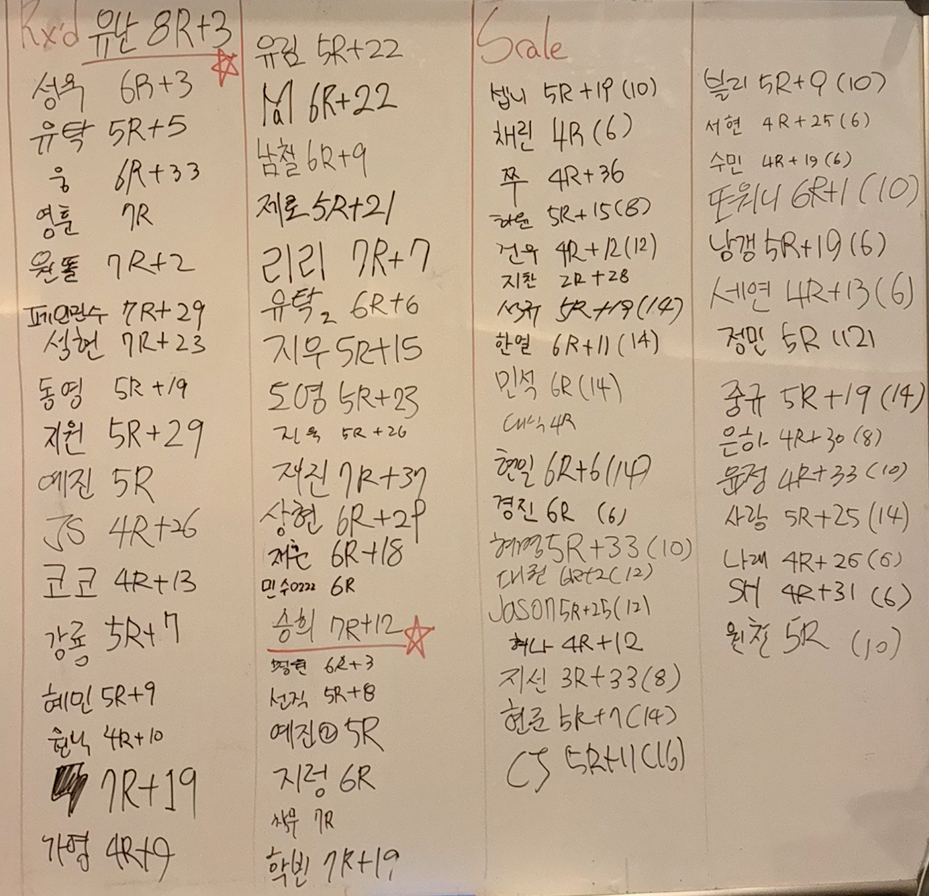 Rx'd 유난 8R+3
성욱 6R+3
유탁 5R+5
웅 6R+33
영훈 7R
원똘 7R+2
페인만수 7R+29
석현 7R+23
동영 5R+19
지원 5R+29
예진 5R
JS 4R+26
코코 4R+13
강룡 5R+7
혜민 5R+9
4R+10
7R+19
가영 4R+9
유림 5R+22
6R+22
남철 6R+9
제로 5R+21
리리 7R+7
유탁2 6R+6
지우 5R+15
도영 5R+23
진욱 5R+26
재진 7R+37
상현 6R+29
재훈 6R+18
민수0222 6R
승희 7R+12
정현 6R+3
선직 5R+8
예진② 5R
지렁 6R
7R
학빈 7R+19
Scale
셉니 5R+19(10)
채린 4R(6)
쭈 4R+36
하윤 5R+15(8)
건우 4R+12(12)
지찬 2R+28
5R+19(14)
한열 6R+11(14)
민석 6R(14)
대식 4R
현일 6R+6(14)
경진 6R (6)
혜경 5R+33(10)
대원 6R+2(12)
Jason 5R+25(12)
하나 4R+12
지선 3R+33(8)
현준 5R+7(14)
CJ 5R+11(16)
블리 5R+9(10)
서현 4R+25(6)
수민 4R+19(6)
또위니 6R+1(10)
남갱 5R+19(6)
세연 4R+13(6)
정민 5R (12)
중규 5R+19(14)
은하 4R+30(8)
윤정 4R+33(10)
사랑 5R+25(14)
나래 4R+26(6)
SH 4R+31(6)
원철 5R (10)